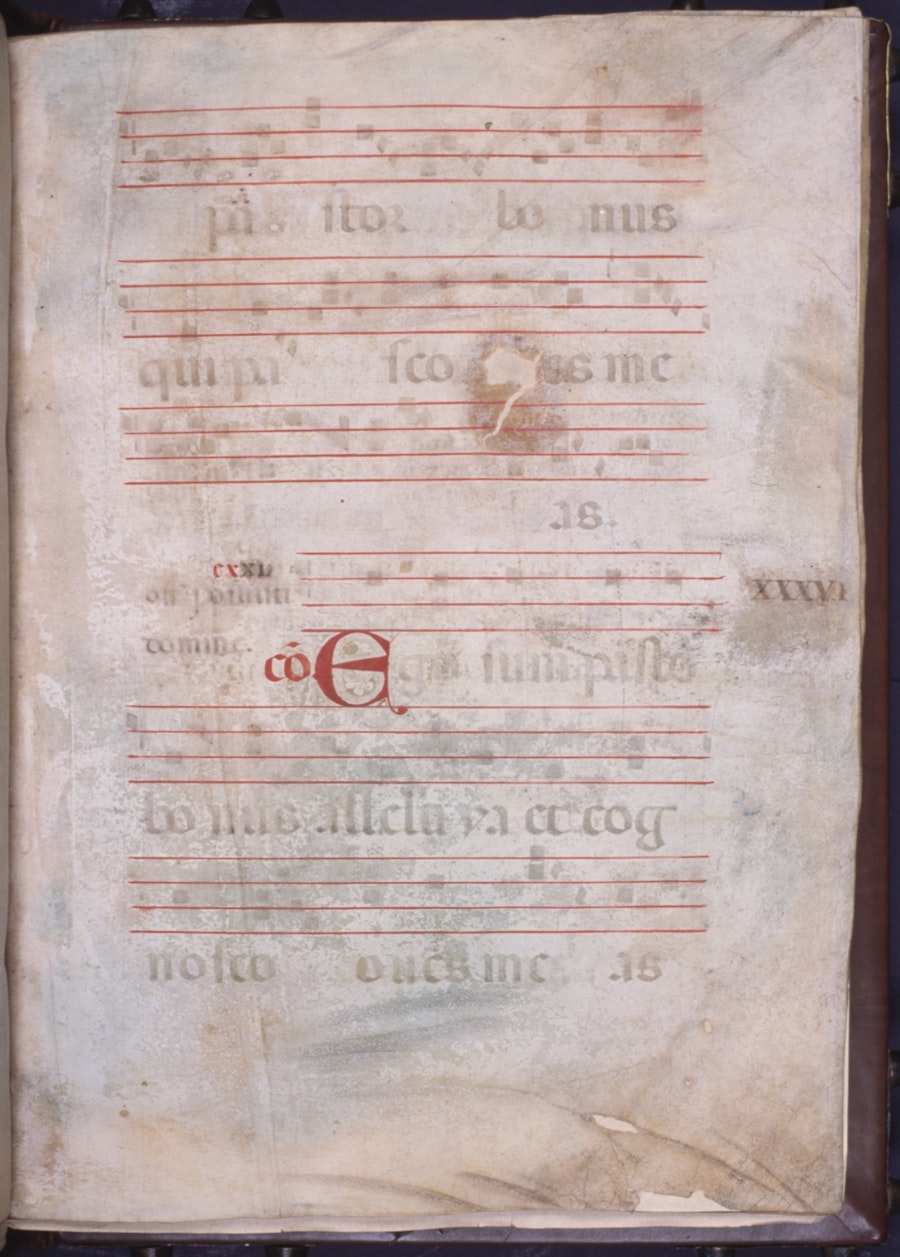 pa s stor bo nus
qui pa sco es me
as.
cxxi
off portaui XXXVI
domine.
cō Ego sum pasto
bo nus allelu ya et cog
nosco oues me as